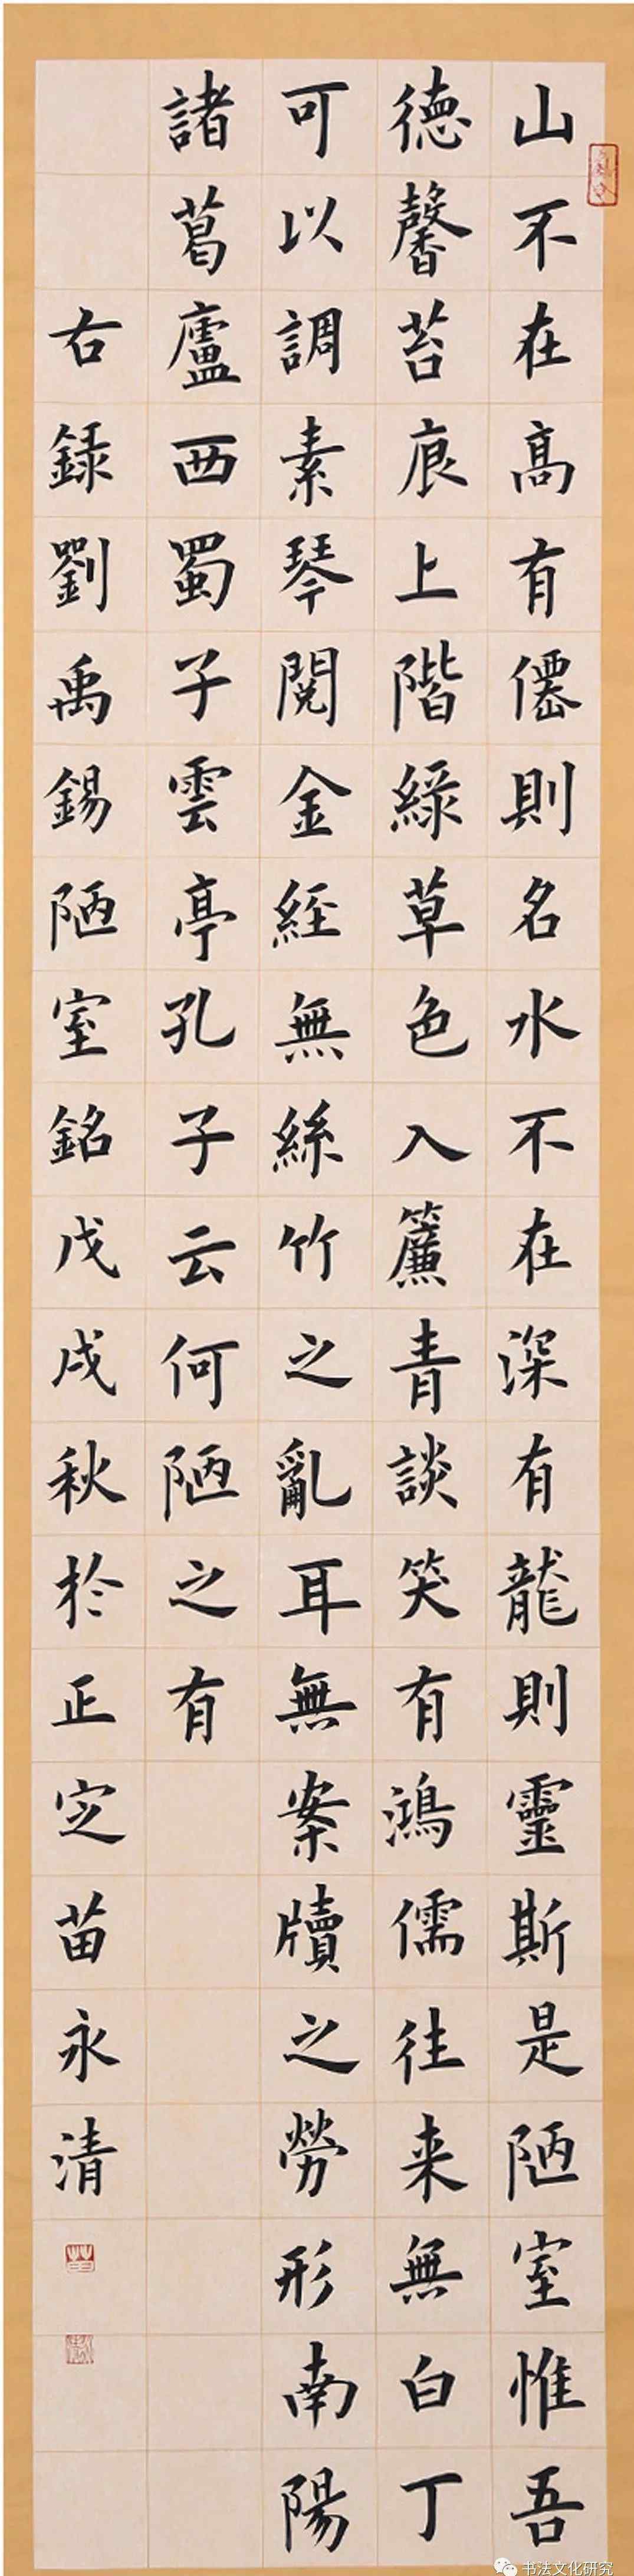 山不在高有僊則名水不在深有龍則靈斯是陋室惟吾
德馨苔痕上階緑草色入簾青談笑有鴻儒往来無白丁
可以調素琴閲金經無絲竹之亂耳無案牘之勞形南陽
諸葛廬西蜀子雲亭孔子云何陋之有
右録劉禹錫陋室銘戊戌秋於正定苗永清
书法文化研究